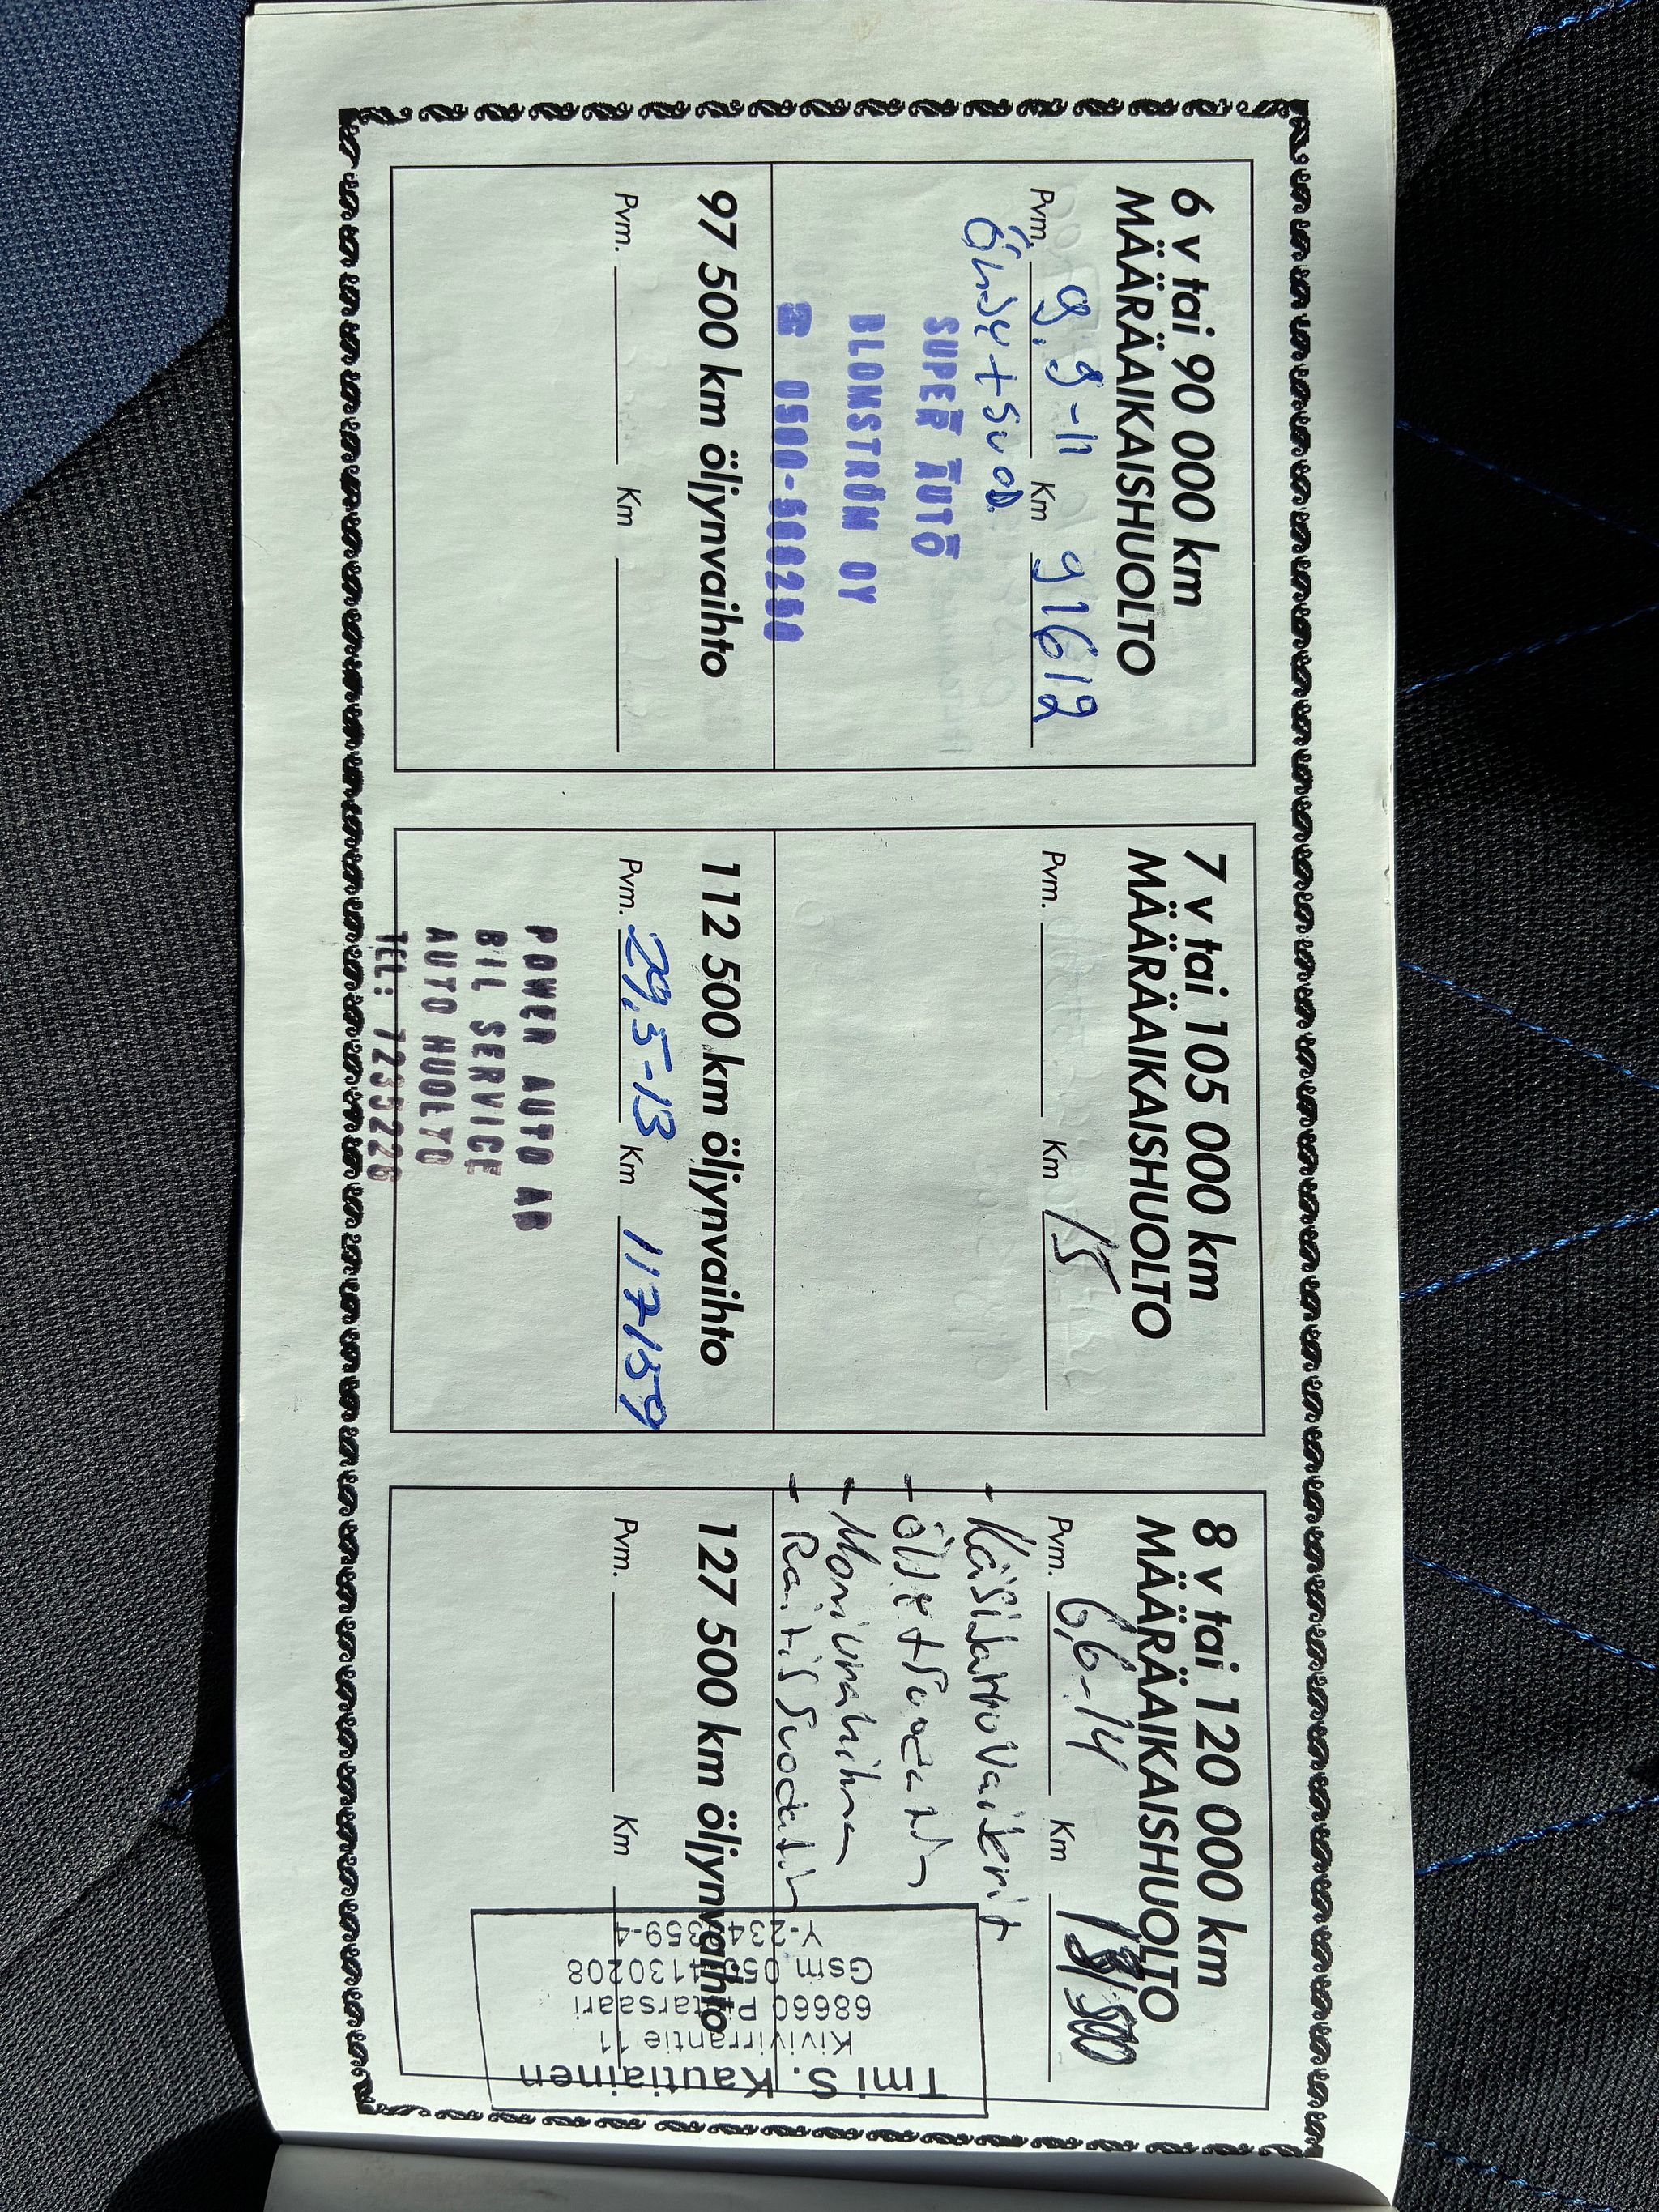 6 v tai 90 000 km
MÄÄRÄAIKAISHUOLTO
Pvm. 9.9-11 Km 91612
Öljy + suod.
SUPER AUTO
BLOMSTRÖM OY
☎ 0500-566250
97 500 km öljynvaihto
Pvm. Km
7 v tai 105 000 km
MÄÄRÄAIKAISHUOLTO
Pvm. Km 15
112 500 km öljynvaihto
Pvm. 29,5-13 Km 117159
POWER AUTO AB
BIL SERVICE
AUTO HUOLTO
TEL: 7235226
8 v tai 120 000 km
MÄÄRÄAIKAISHUOLTO
Pvm. 6,6-14 Km
- Käsijarruvaijerit
- öljyt + suodatin
- Moniurahihna
- Raitis Suodatin
127 500 km öljynvaihto
Pvm. Km
Tmi S. Kautiainen
Kivivirrantie 11
68660 Pietarsaari
Gsm. 4130208